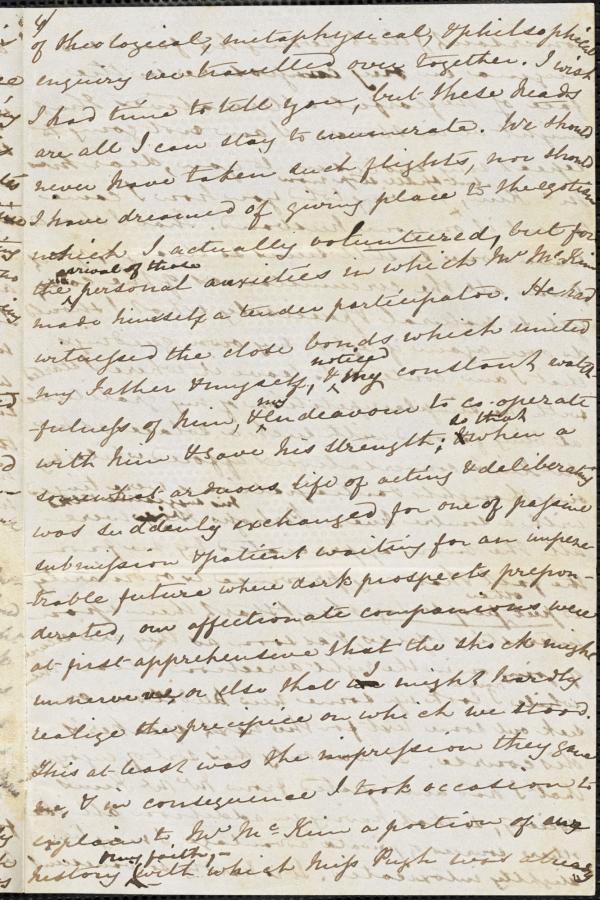 4/
of theological, metaphysical, & philosophical
enquiry we travelled over together. I wish
I had time to tell you, but these heads
are all I can stay to enumerate. We should
never have taken such flights, nor should
I have dreamed of giving place to the egotism
which I actually volunteered, but for
arrival of those
the personal anxieties in which Mr McKim
made himself a tender participator. He had
witnessed the close bonds which united
noticed
my Father & myself, & my constant watch-
my
fulness of him, & endeavour to co-operate
so that
with him & save his strength; when a
somewhat arduous life of acting & deliberating
was suddenly exchanged for one of passive
submission & patient waiting for an impene-
trable future where dark prospects prepon-
derated, our affectionate companions were
at first apprehensive that the shock might
I
unnerve me, or else that we might hardly
realize the precipice on which we stood.
This at least was the impression they gave
me, & in consequence I took occasion to
explain to Mr McKim a portion of our
my faith,
history with which Miss Pugh was already